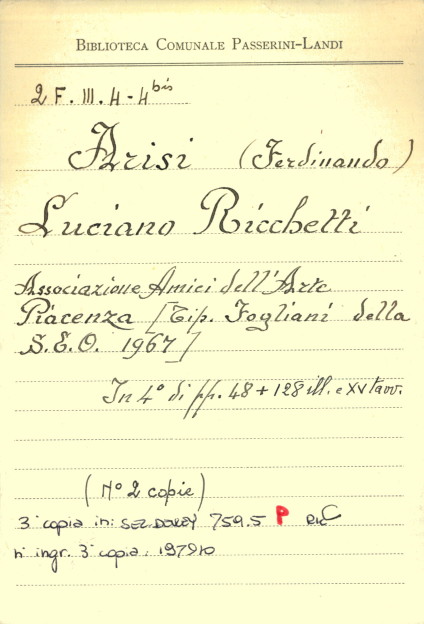 BIBLIOTECA COMUNALE PASSERINI-LANDI
2 F. III. 4 - 4 bis
Arisi (Ferdinando)
Luciano Ricchetti
Associazione Amici dell'Arte
Piacenza [Tip. Fogliani della
S.E.O. 1967]
In 4° di pp. 48 + 128 ill. e XV tavv.
(N° 2 copie)
3ª copia in: SEZ. DEWEY 759.5 P RIC
n. ingr. 3ª copia: 197910